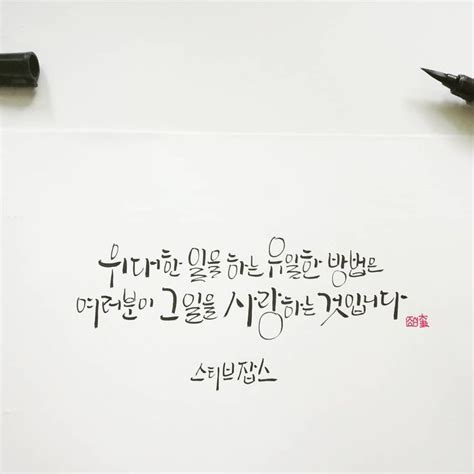 위대한 일을 하는 유일한 방법은
여러분이 그 일을 사랑하는 것입니다
스티브 잡스